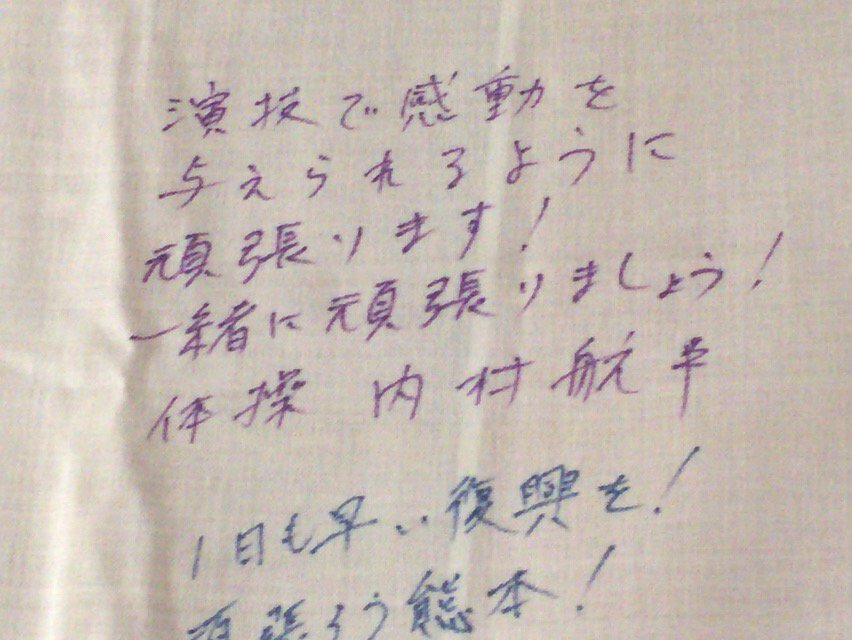 演技で感動を
与えられるように
頑張ります！
一緒に頑張りましょう！
体操 内村航平
1日も早い復興を！
張ろう熊本！